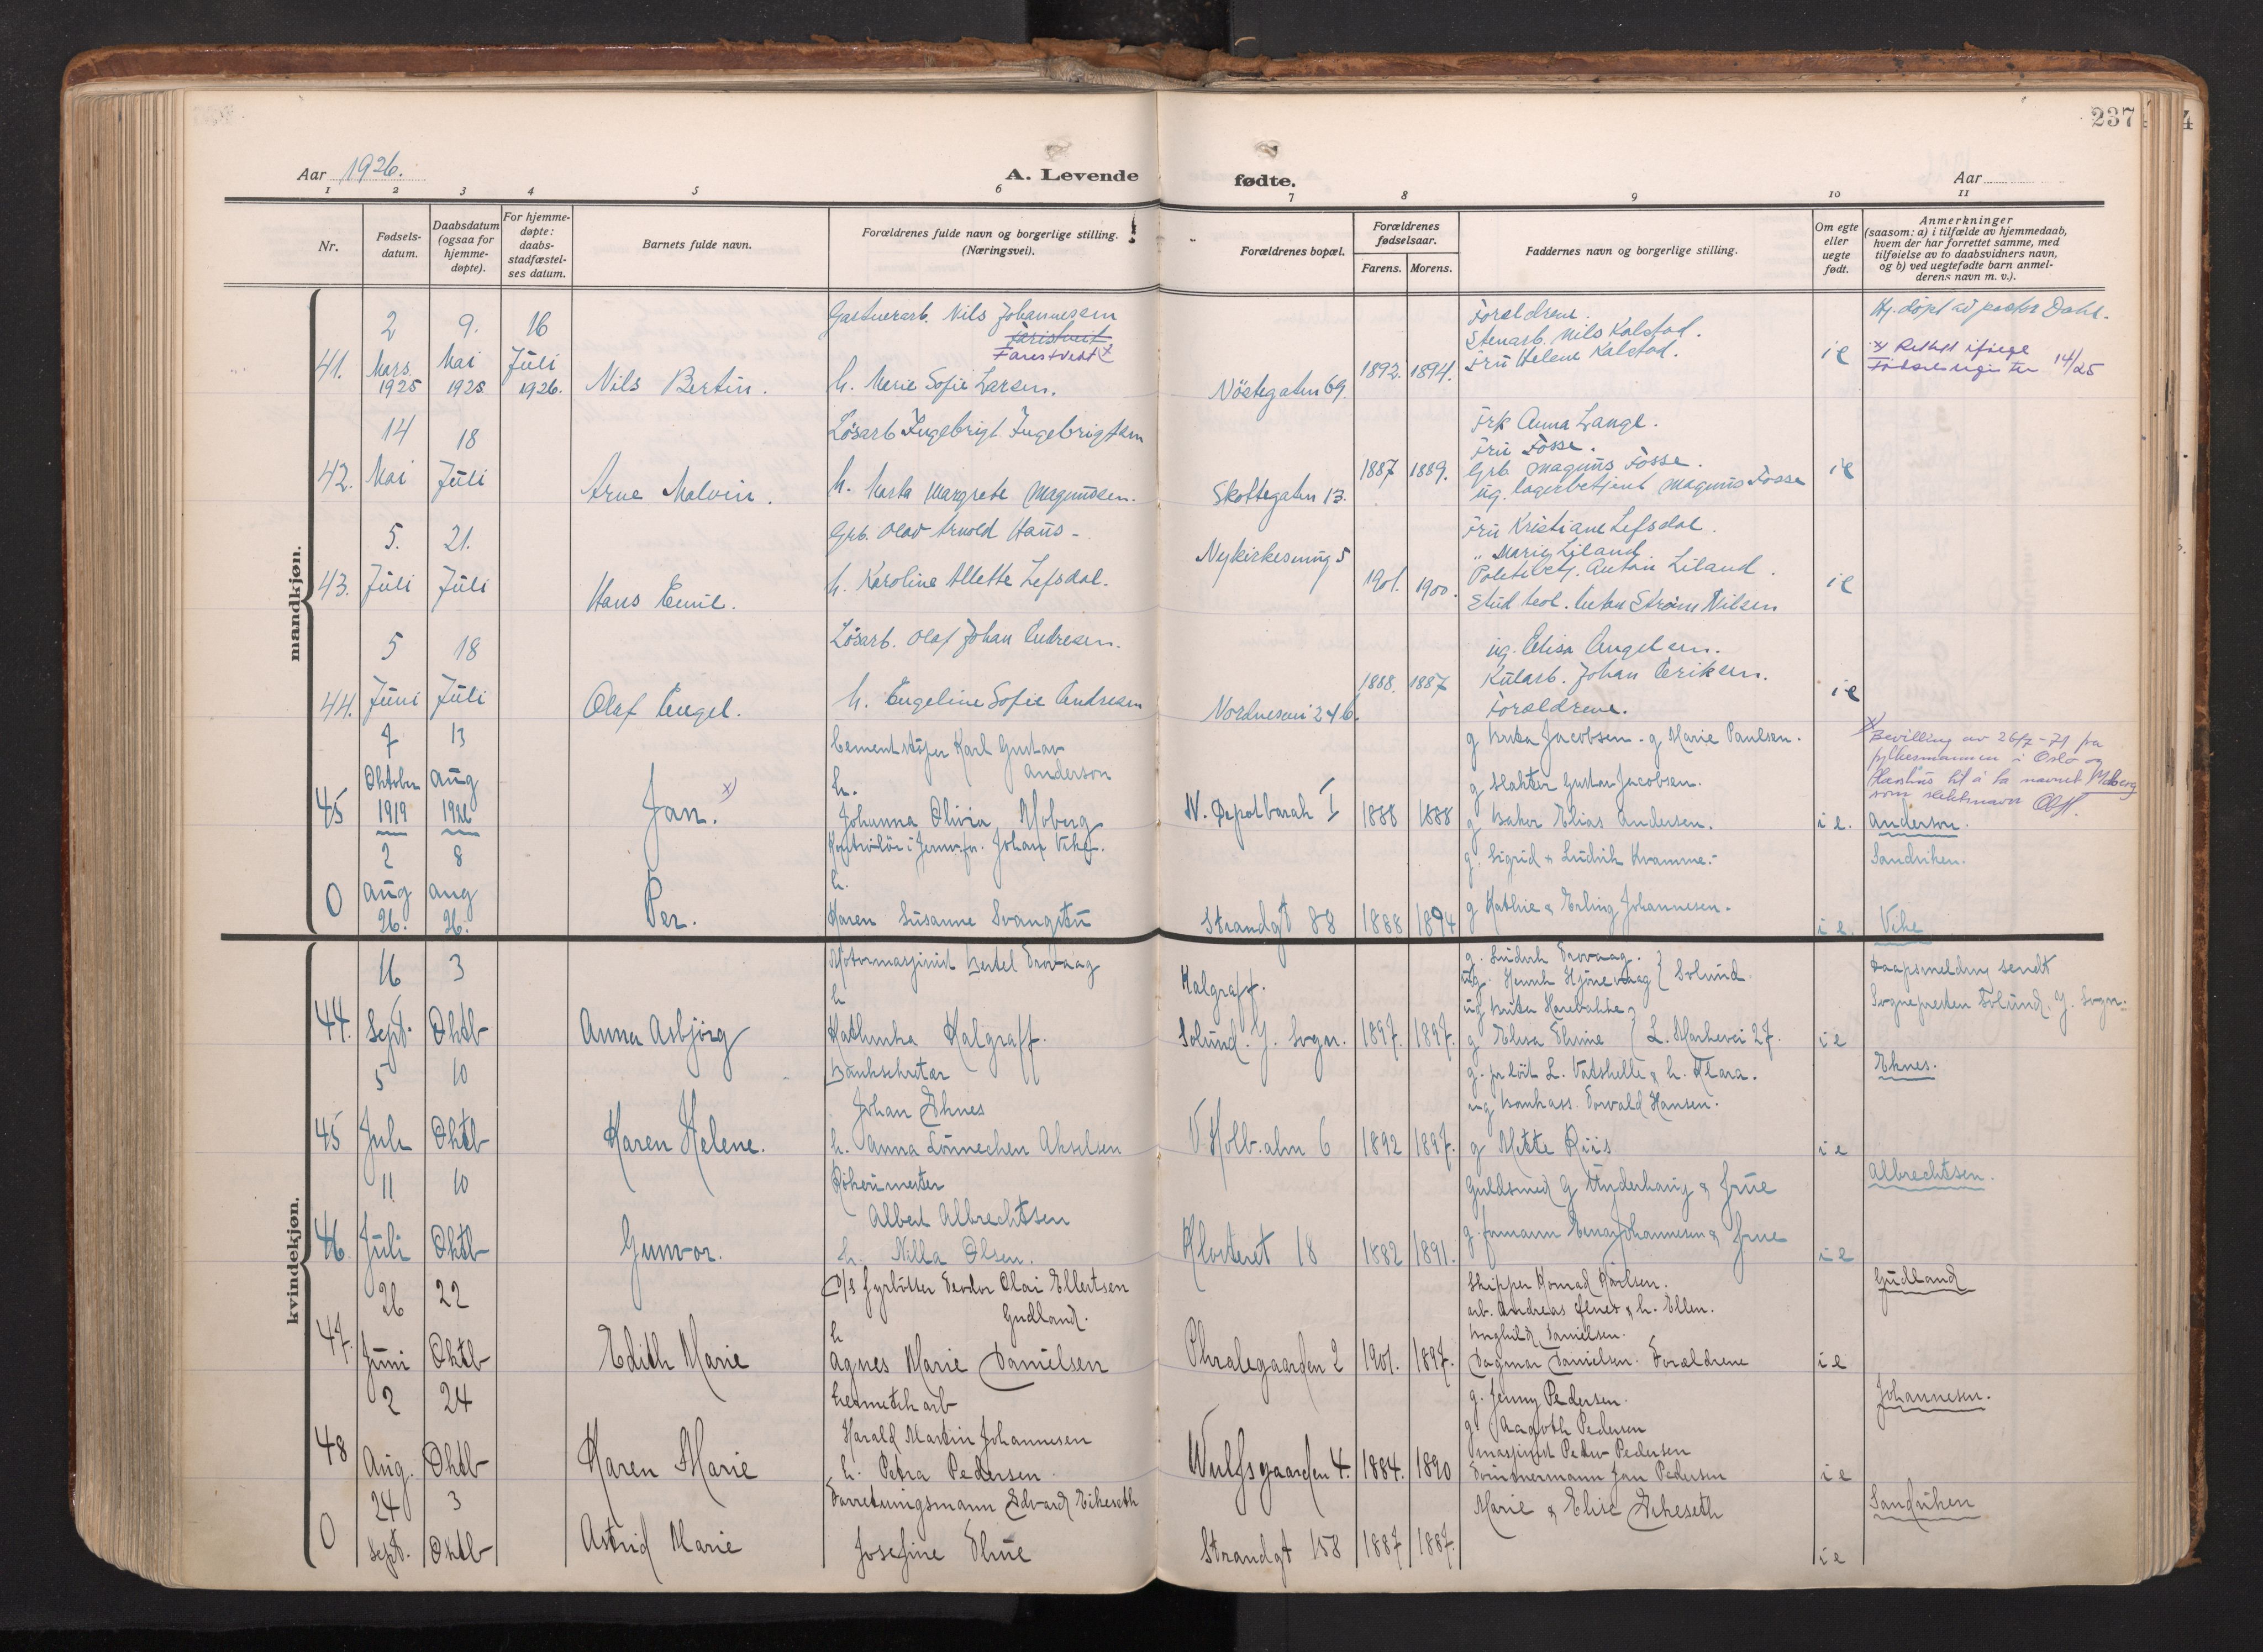 237
Aar 1926.
A. Levende
fødte.
Aar
1 2 3 4 5 6 7 8 9 10 11
Nr.
Fødsels-
datum.
Daabsdatum
(ogsaa for
hjemme-
døpte).
For hjemme-
døpte:
daabs-
stadfæstel-
ses datum.
Barnets fulde navn.
Forældrenes fulde navn og borgerlige stilling.
(Næringsvei).
Forældrenes bopæl.
Forældrenes
fødselsaar.
Farens. Morens.
Faddernes navn og borgerlige stilling.
Om egte
eller
uegte
født.
Anmerkninger
(saasom: a) i tilfælde av hjemmedaab,
hvem der har forrettet samme, med
tilføielse av to daabsvidners navn,
og b) ved uegtefødte barn anmel-
derens navn m. v.).
mandkjøn.
41.
2
Mars
1925
9.
Mai
1925
16
Juli
1926.
Nils Bertin.
Nils Johannessen
Farestvedt x
h. Marie Sofie Larsen.
Nöstegaten 69.
1892. 1894.
Forældrene.
Stenarb. Nils Kalstad.
Fru Helene Kalstad.
i e
Hj. døpt av pastor Dahl.
x) Rettet ifølge
Fødselsregister 14/25
42.
14
Mai
18
Juli
Arne Malvin.
Løsarb Ingebrigt Ingebrigtsen
h. Marta Margrete Magnussen.
Skottegaten 13.
1887 1889.
Frk Anna Lange.
Fru Fosse.
Grb. Magnus Fosse.
ug. lagerbetjent Magnus Fosse
i e
43.
5.
Juli
21.
Juli
Hans Emil.
Grb. Olav Arnold Haus-
h. Karoline Alette Lefsdal.
Nykirkesmug 5
1901. 1900.
Fru Kristiane Lefsdal.
" Marie Liland.
Politibetj. Anton Liland.
Stud teol. Strøm Nilsen
i e
44.
5
Juni
18
Juli
Olaf Engel.
Løsarb. Olaf Johan Andresen.
h. Engeline Sofie Andresen
Nordnesvei 24 b.
1888. 1887
ug. Elisa Engelsen.
Kularb. Johan Eriksen.
Forældrene.
i e
45
7
Oktober
1919
13
Aug
1926
Jan. x)
Cementstöper Karl Gustav
Anderson
h.
Johanna Olivia Moberg
N. Depotbarak I
1888 1888
g Berta Jacobsen - g Marie Paulsen.
g Slakter Gustav Jacobsen.
g Baker Elias Andersen.
i e.
x)
Bevilling av 26/7-71 fra
fylkesmannen i Oslo og
Akershus til å ta navnet Moberg
som slektsnavn
Anderson.
0
2
Aug
26.
8
Aug
26.
Per.
Kontrolör i Jernv.fr. Johan Vike.
h.
Karen Susanne Svangstu
Strandgt 88
1888 1894
g. Sigrid & Ludvik Kvamme.-
g Kathie & Erling Johannesen.
i e.
Sandviken.
Vike
kvindekjøn.
44.
16
Sept.
3
Oktb
Anna Asbjörg
Motormaskinist Bertel Trovaag
h
Kathinka Kalgraff.
Kalgraff.
Solund. Y. Sogn.
1897. 1897.
g. Ludvik Trovaag.
ug. Henrik Hjönevaag } Solund
ug Berta Harebakke
g Elisa Thime { L. Markevei 27.
i e
Daapsmelding sendt
Sognepresten Solund. Y. Sogn.
45
5
Juli
10
Oktb
Karen Helene.
Banksekretær
Johan Eknes
h. Anna Lönnechen Akselsen
V. Holb. alm 6
1892 1897.
g. pr löit L. Vatshelle & h. Klara.
ug bankass. Torvald Hansen.
g Mette Riis
i e
Eknes.
46.
11
Juli
10
Oktb
Gunvor.
Albert Albrechtsen
h. Nilla Olsen.
Klosteret 18
1882 1891.
Guldsmed G Underhaug & frue
g. formann Einar Johannesen & frue
i e
Albrechtsen.
47.
26
Juni
22
Oktb
Edith Marie
D/S fyrböter Teodor Olai Ellertsen
Gudland.
h
Agnes Marie Danielsen
Phralegaarden 2
1901. 1897.
Skipper Konrad Karlsen.
arb. Andreas & h. Ellen.
Danielsen.
Dagmar Danielsen. Forældrene
i e
Gudland
48
2
Aug.
24
Oktb
Karen Marie
hermetikarb
Harald Martin Johannesen
h. Petra Pedersen.
Wulfsgaarden 4.
1884. 1890
g. Jenny Pedersen.
g Aagoth Pedersen
maskinist Peder Pedersen
Tömmermann Jan Pedersen
i e
Johannesen.
0
24
Sept.
3
Oktb
Astrid Marie
Forretningsmann Edvard Eikeseth
Josefine Thue
Strandgt 158
1887 1887.
Marie & Elise Eikeseth
i e
Sandviken